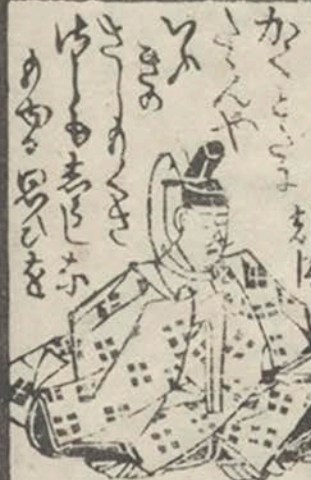 かくとたに
いふ
きの
さしもくさ
さしも志らしな
もゆる思ひを